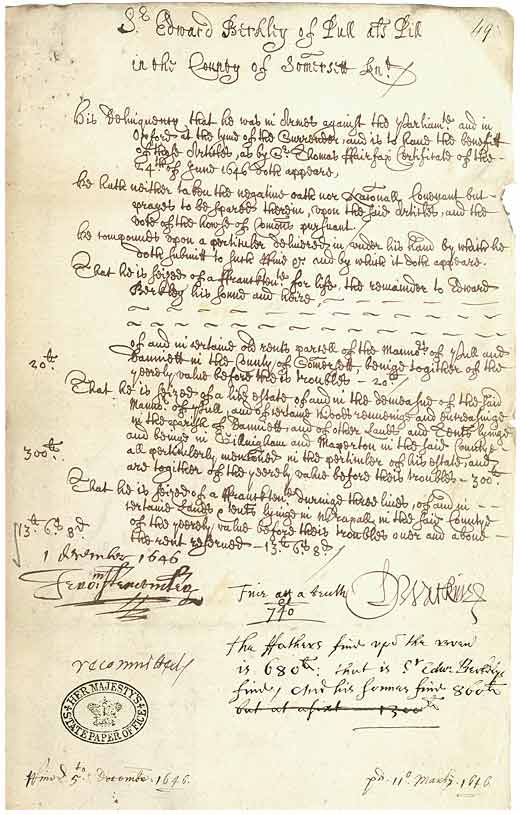 Sr Edward Berkley of Pull als Pill 49
in the County of Somersett Knt
His Delinquency that he was in Armes against the Parliamt, and in
Oxford at the tyme of the Surrender, and is to have the benefitt
of those Articles, as by Sr Thomas Ffairfax Certificate of the
24th of June 1646 doth appeare,
he hath neither taken the negative oath nor Nationall Covenant but
prayes to be spared therein, upon the said Articles, and the
vote of the house of Comons pursuant
he compounds upon a perticuler delivered in under his hand by which he
doth submitt to such ffine &c and by which it doth appeare.
That he is seized of a ffranktenemt for life, the remainder to Edward
Berkley his sonne and heire,
of and in certaine old rents parcell of the Mannors of Pull and
in the County of Somersett, beinge together of the
20li yeerely value before theis troubles – 20li
That he is seized of a like estate of and in the demeasne of the said
Mannor of Pull, and of certaine woods
in the parish of and of other Lands and Tents lyinge
and beinge in and Maperton in the said County
300li all perticulerly mentioned in the perticuler of his estate, and
are together of the yeerely value before theis troubles – 300li
That he is seized of a ffranktenemt duringe three lives, of and in
certaine Lands & tents lyinge in in the said County
of the yeerely value before theis troubles over and above
13li 6s 8d the rent reserved – 13li 6s 8d
1 december 1646
D Watkins
740
the ffathers fine upon the
is 680li: that is Sr Edw. Berkley
fine, And his sonnes fine 860li
but at 1300li
recommitted
HER MAJESTY'S
STATE PAPER OFFICE
5to December 1646.
11o 1646.